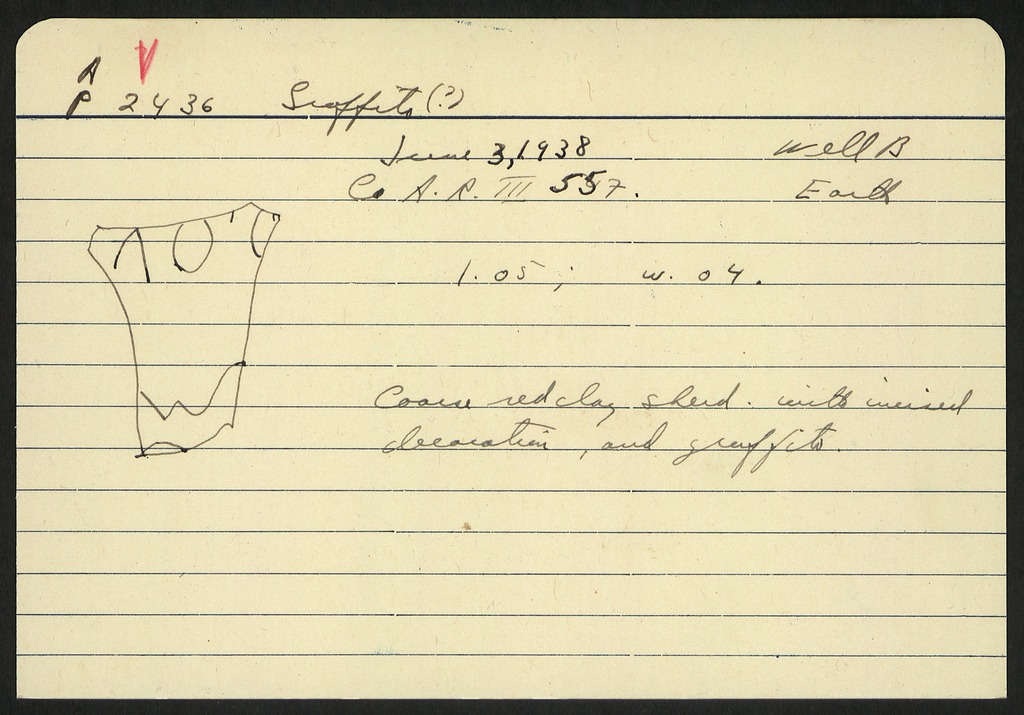 A
P 2436 Graffito (?)
June 3, 1938 Well B
Co A. P. III 557. Earth
l. 05; w. 04.
Coarse red clay sherd. with incised
decoration, and graffito.